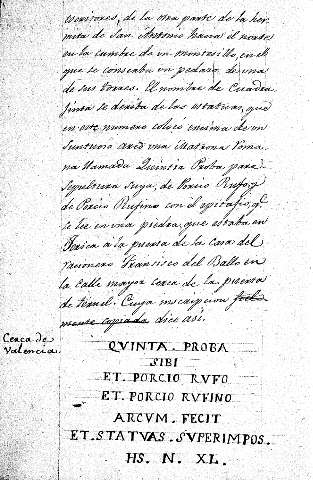 escritores, de la otra parte de la her-
mita de San Antonio hacia el norte
en la cumbre de un montesillo, en el
que se conserva un pedazo de una
de sus torres. El nombre de Quadra-
finta se deriba de las estatuas, que
en este numero colocó encima de un
suntuoso arco una Matrona Roma-
na llamada Quintia Proba para
sepultura suya, de Porcio Rufo, y
de Porcio Rufino con el epitafio, q.e
se lee en una piedra, que estaba en
Xerica á la puerta de la casa del
racionero Francisco del Ballo en
la calle mayor cerca de la puerta
de Teruel. Cuya inscripcion fiel-
mente copiada dice asi.
Cerca de
Valencia.
QVINTA. PROBA
SIBI
ET. PORCIO RVFO
ET. PORCIO RVFINO
ARCVM. FECIT
ET. STATVAS. SVPERIMPOS.
HS. N. XL.